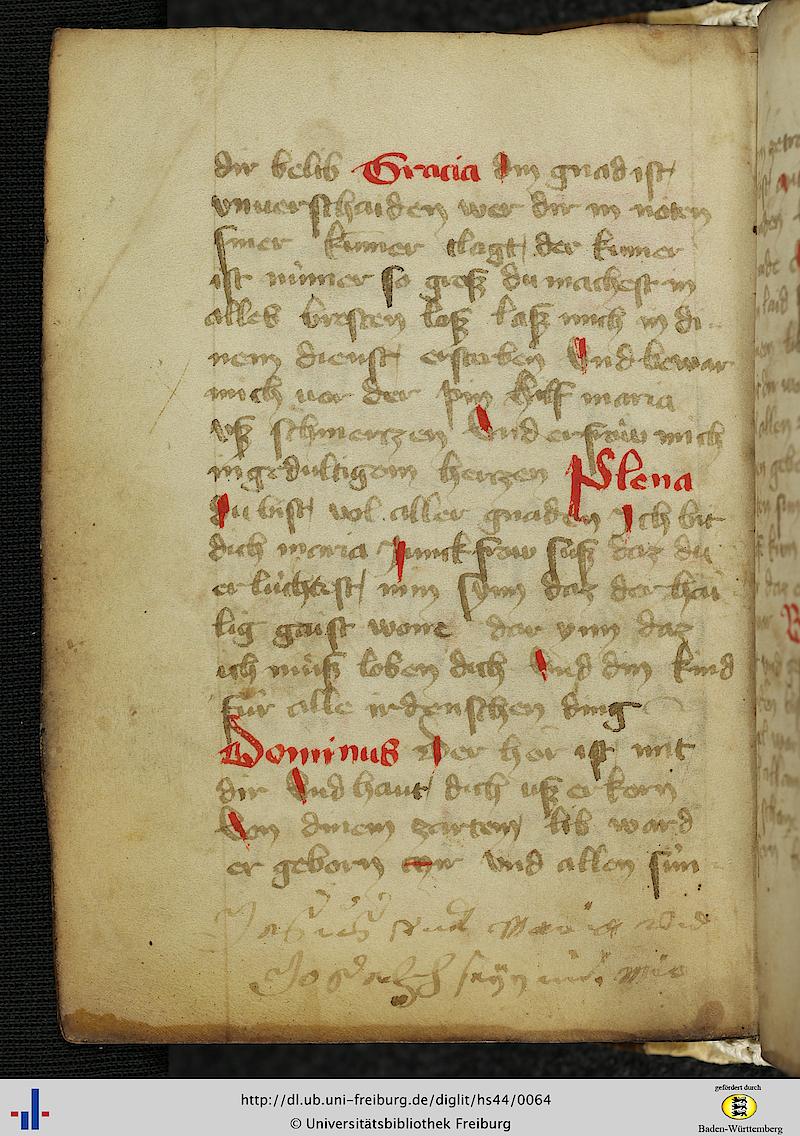 dir belib Gracia Din gnad ist
vnuerschaiden wer dir in nöten
siner kumer clagt der kumer
ist nimer so groß du machest in
alles bresten loß laß mich in di
nem dienst ersterben Vnd bewar
mich vor der pin Hilf maria
vß schmertzen Vnd erfröw mich
in gedultigem hertzen Plena
Du bist vol aller gnaden Ich bit
dich maria Junckfrow süß daz du
erlüchtest min synn daz der hai
lig gaist wone dar ynn daz
ich müß loben dich Vnd din kind
für alle irdenschen ding
Dominus Der her ist mit
dir Vnd haut dich uß erkorn
Von dinem zartem lib ward
er geborn mir vnd allen sün
vnd
Joseph
http://dl.ub.uni-freiburg.de/diglit/hs44/0064
© Universitätsbibliothek Freiburg
gefördert durch
Baden-Württemberg